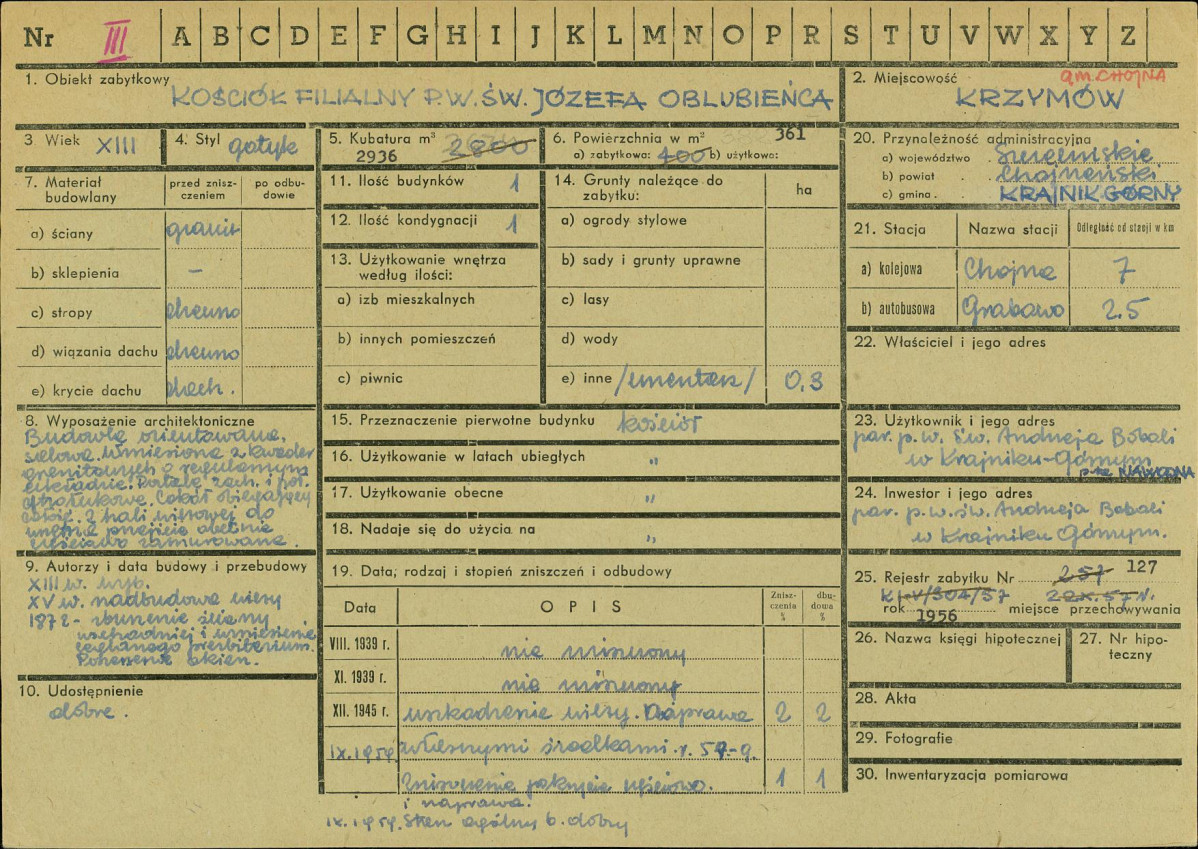 Nr III A B C D E F G H I J K L M N O P R S T U V W X Y Z
1. Obiekt zabytkowy
KOŚCIÓŁ FILIALNY P.W. ŚW. JÓZEFA OBLUBIEŃCA
2. Miejscowość
gm. CHOJNA
KRZYMÓW
3 Wiek XIII
4. Styl gotyk
5. Kubatura m³ 2800
2936
6. Powierzchnia w m² 361
a) zabytkowa: 400 b) użytkowo:
20. Przynależność administracyjna
a) województwo . Szczecińskie
b) powiat . Chojneński
c) gmina . KRAJNIK GÓRNY
7. Materiał budowlany
przed znisz-
czeniem
po odbu-
dowie
a) ściany granit
b) sklepienia –
c) stropy drewno
d) wiązania dachu drewno
e) krycie dachu dach.
11. Ilość budynków 1
12. Ilość kondygnacji 1
13. Użytkowanie wnętrza
według ilości:
a) izb mieszkalnych
b) innych pomieszczeń
c) piwnic
14. Grunty należące do
zabytku:
ha
a) ogrody stylowe
b) sady i grunty uprawne
c) lasy
d) wody
e) inne /cmentarz/ 0,3
21. Stacja Nazwa stacji Odległość od stacji w km
a) kolejowa Chojna 7
b) autobusowa Grabowo 2.5
22. Właściciel i jego adres
8. Wyposażenie architektoniczne
Budowla orientowana,
salowa. Wzniesiona z kwader
granitowych o regularnym
układzie. Portale zach. i poł.
ostrołukowe. Cokół obiegający
całość. Z hali wieżowej do
wnętrza przejście obecnie
częściowo zamurowane.
9. Autorzy i data budowy i przebudowy
XIII w. wyb.
XV w. nadbudowa wieży
1872 - zburzenie ściany
wschodniej i wzniesienie
ceglanego prezbiterium.
Poszerzenie okien.
10. Udostępnienie
dobre.
15. Przeznaczenie pierwotne budynku kościół
16. Użytkowanie w latach ubiegłych "
17. Użytkowanie obecne "
18. Nadaje się do użycia na "
19. Data, rodzaj i stopień zniszczeń i odbudowy
Data OPIS Znisz-
czenia
% dbu-
dowa
%
VIII. 1939 r. nie zniszczony
XI. 1939 r. nie zniszczony
XII. 1945 r. uszkodzenie wieży. Naprawa 2 2
IX.1959. własnymi środkami. r. 57.-9.
Zniszczenie pokrycia częściowo. 1 1
i naprawa.
IX.1959. Stan ogólny b. dobry
23. Użytkownik i jego adres
par. p.w. Św. Andrzeja Boboli
w Krajniku-Górnym
p-ta NAWODNA
24. Inwestor i jego adres
par. p.w. św. Andrzeja Boboli
w Krajniku Górnym.
25. Rejestr zabytku Nr 257 127
Kl-V/304/57 22.X.57 r.
rok 1956 miejsce przechowywania
26. Nazwa księgi hipotecznej
27. Nr hipo-
teczny
28. Akta
29. Fotografie
30. Inwentaryzacja pomiarowa